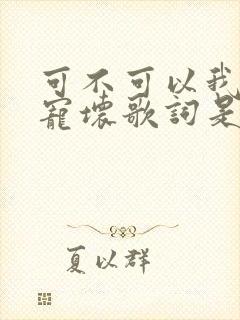 可不可以我
寵壞歌詞是
夏以群